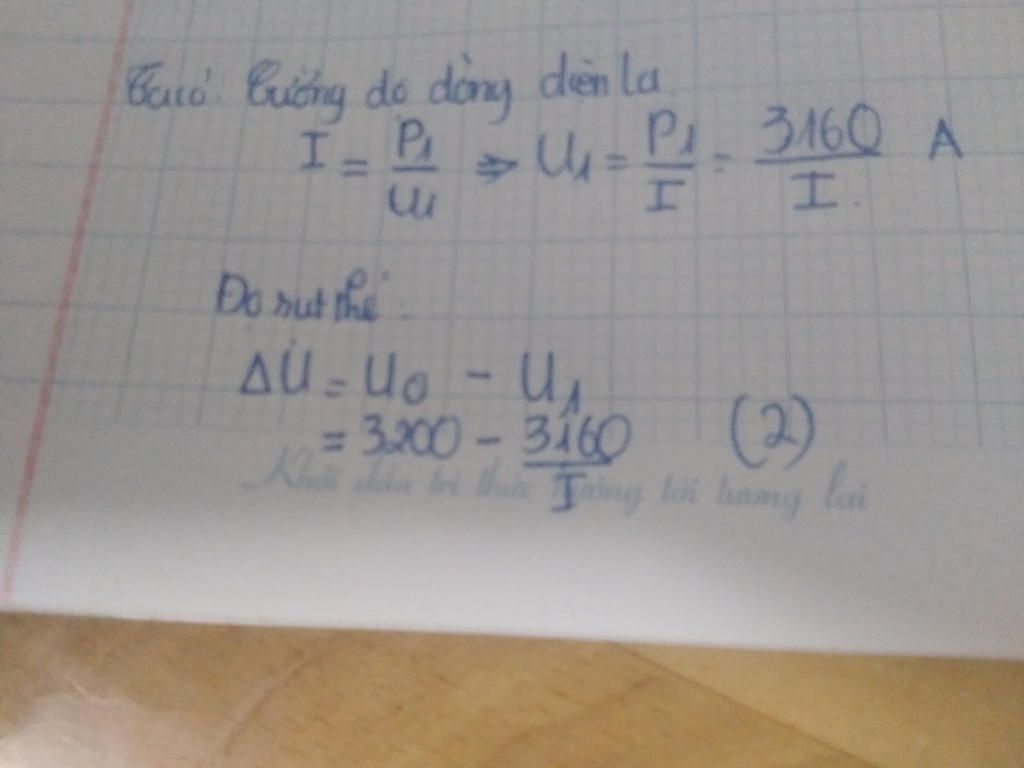 Ta có: Cường dộ dòng diện la
I = P1/U1 => U1 = P1/I = 3160/I A
Độ sụt thế:
ΔU = U0 - U1
= 3200 - 3160/I (2)
Khởi đầu tri thức hướng tới tương lai